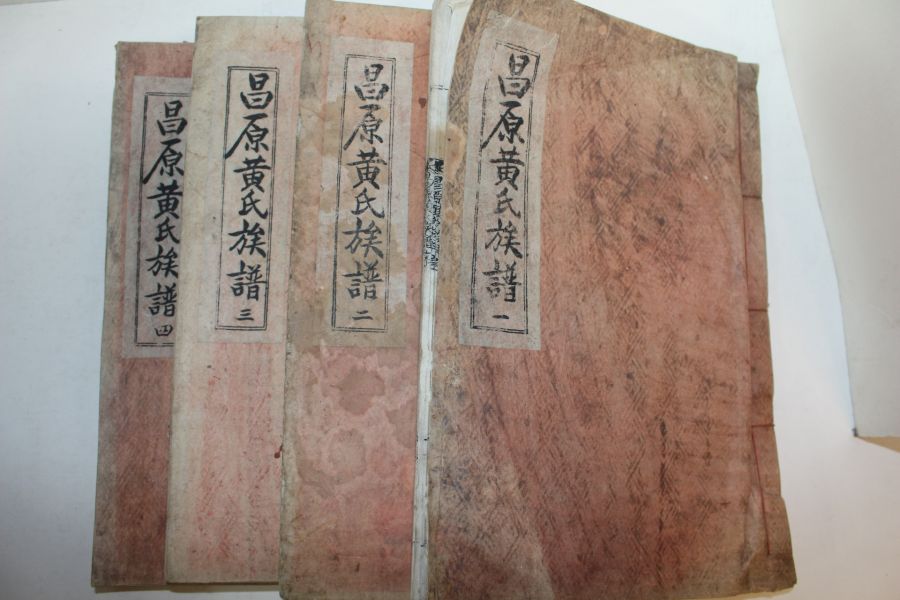 昌原黃氏族譜 一
昌原黃氏族譜 二
昌原黃氏族譜 三
昌原黃氏族譜 四